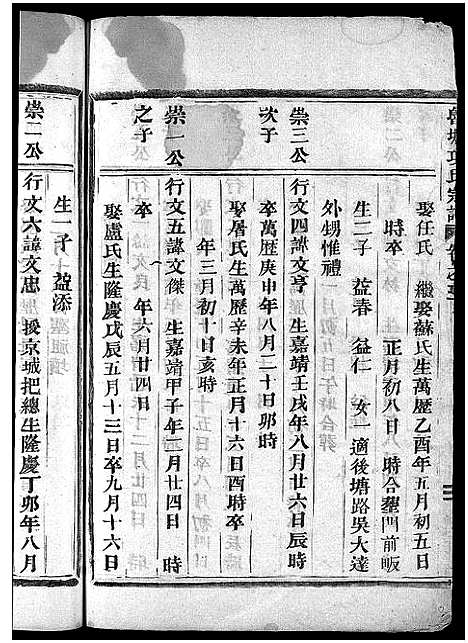 娶任氏 繼娶蘇氏生萬歷乙酉年五月初五日
時卒 正月初八日 時合塟門前畈
生二子 益春 益仁 女一適後塘路吳大達
外甥惟禮
崇三公
次子
行文四諱文亨 生嘉靖壬戌年八月廿六日辰時
卒萬歷庚申年八月二十日卯時
娶居氏生萬歷辛未年正月十六日酉時卒
年三月初十日亥時
崇一公
之子
行文五諱文傑 生嘉靖甲子年二月廿四日 時
卒 年六月廿四日
娶盧氏生隆慶戊辰五月十三日卒九月十六日
生一子 益添
崇二公
行文六諱文忠 授京城把總生隆慶丁卯年八月